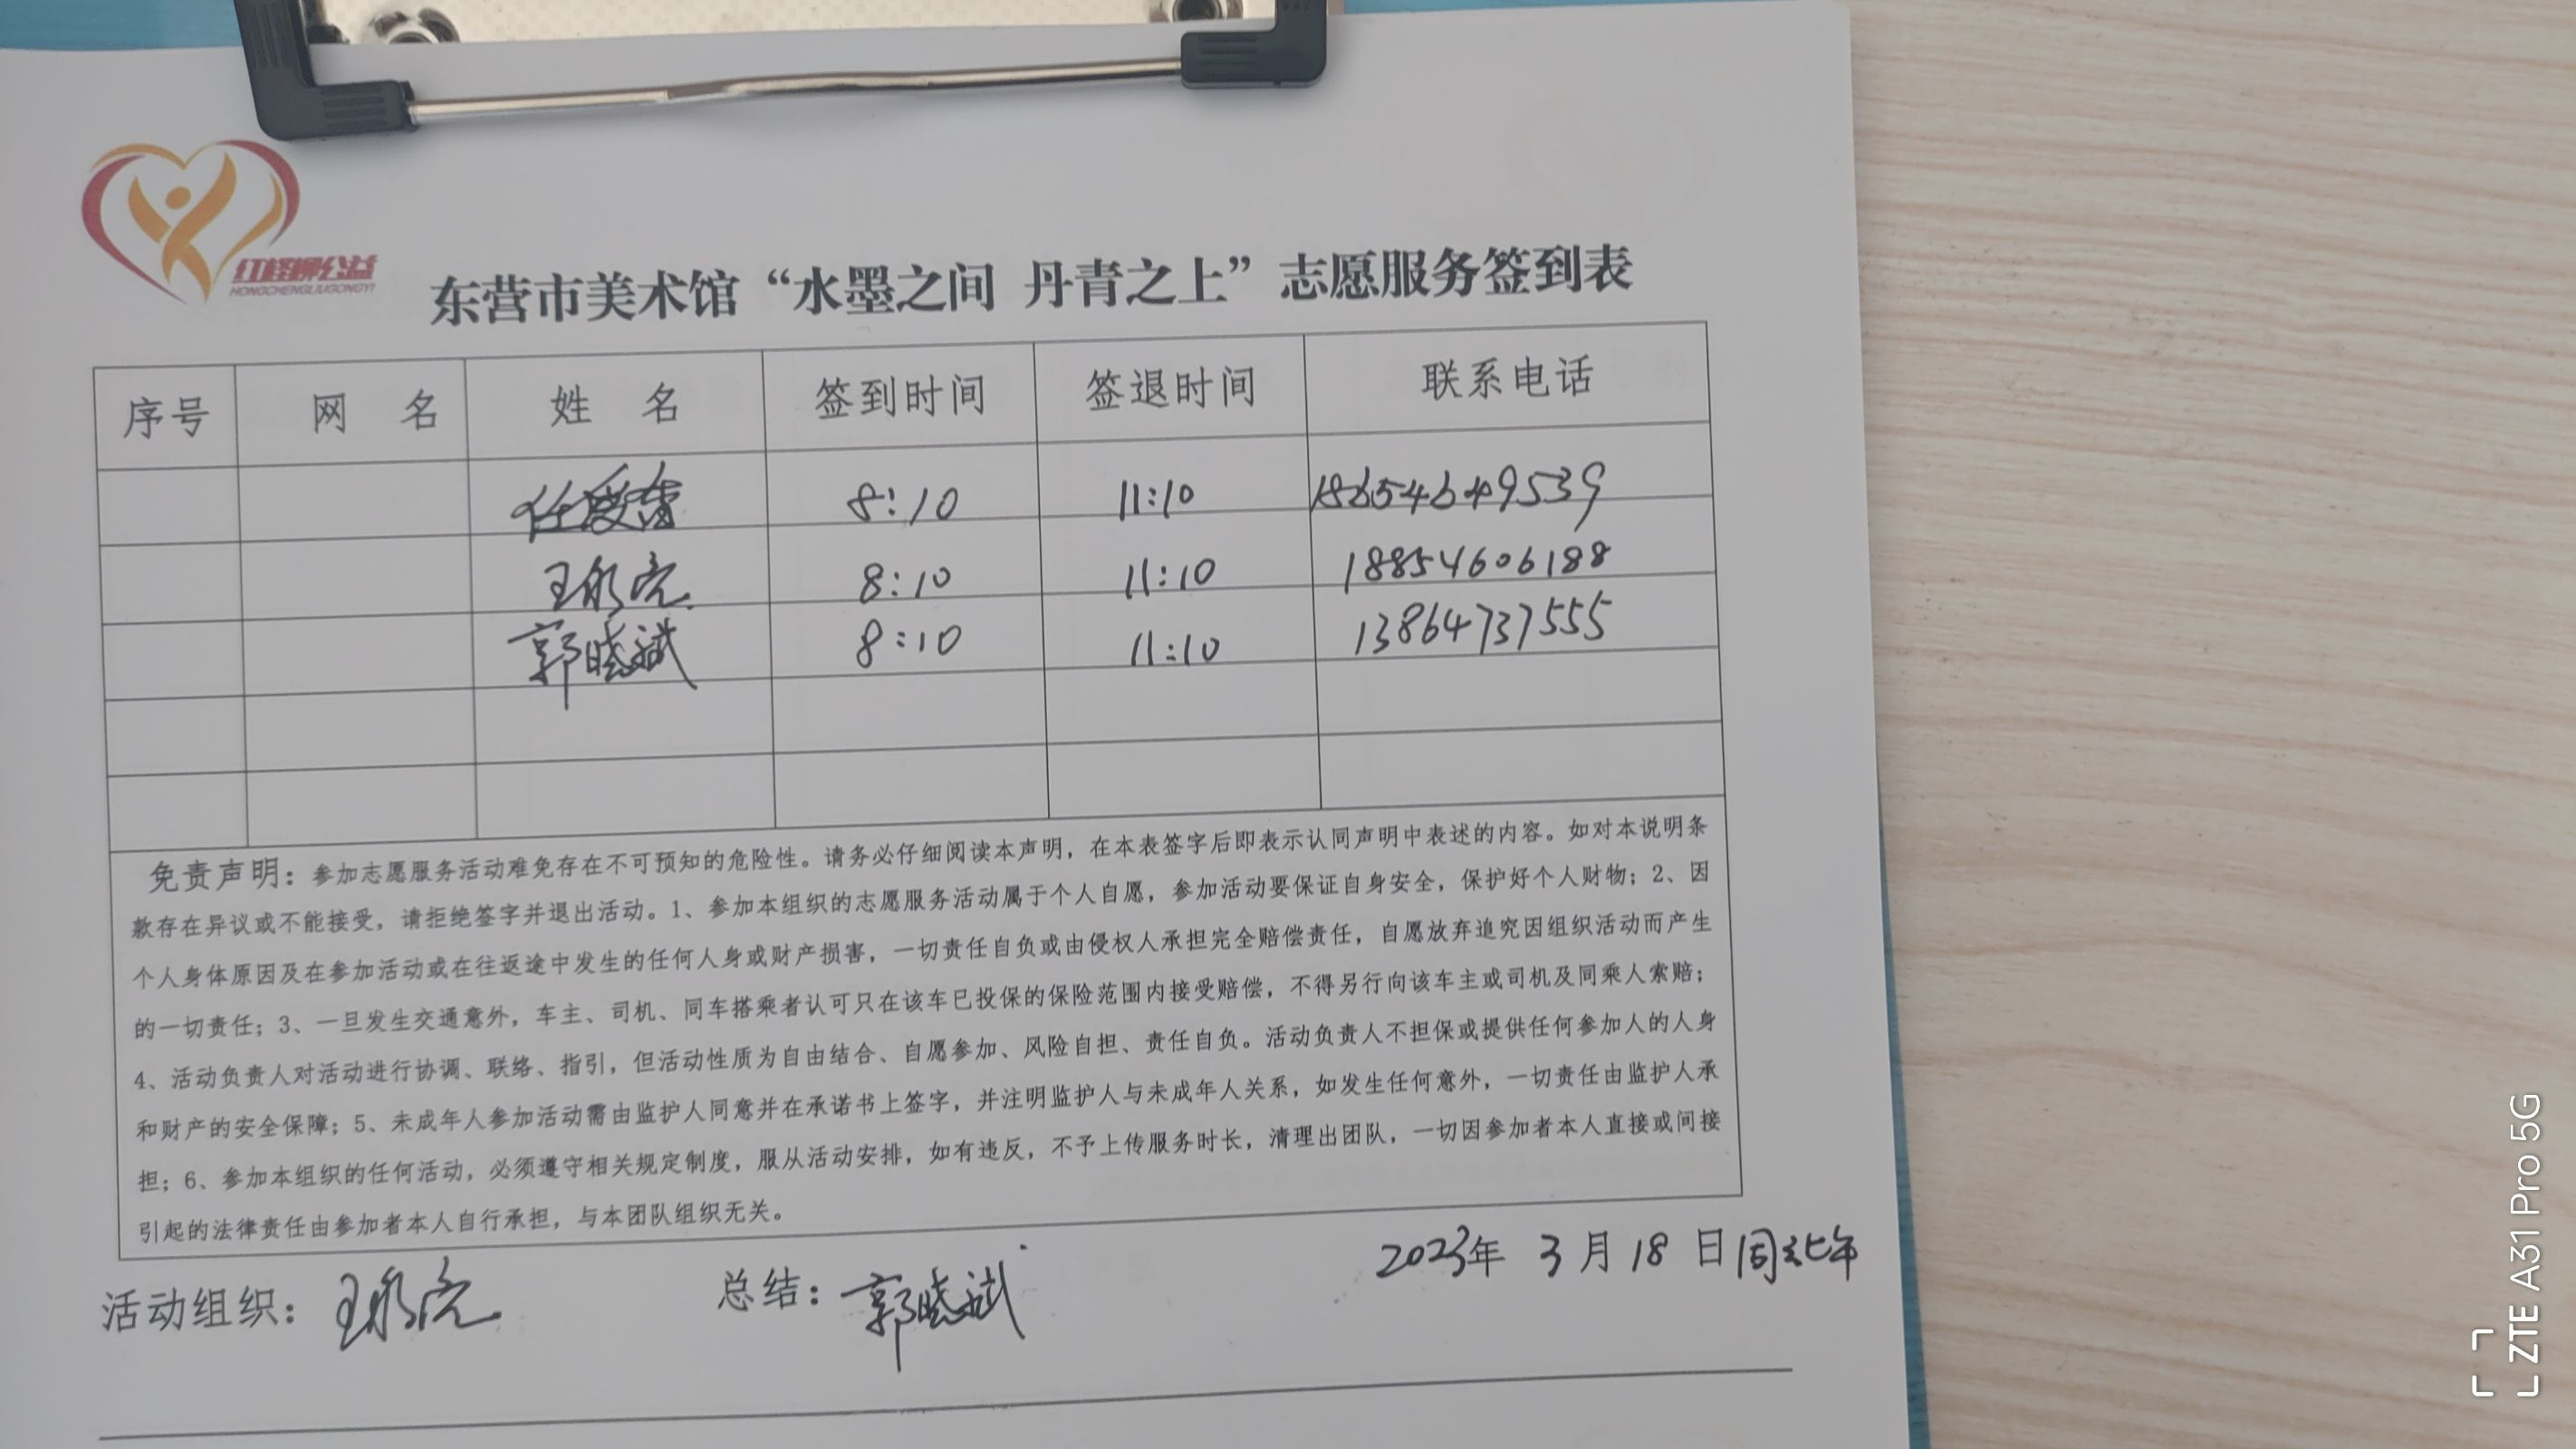 红柽柳公益
HONGCHENGLIUGONGYI
东营市美术馆“水墨之间 丹青之上”志愿服务签到表
序号 网 名 姓 名 签到时间 签退时间 联系电话
8:10 11:10 18654649539
王永亮 8:10 11:10 18854606188
郭晓斌 8:10 11:10 13864737555
免责声明：参加志愿服务活动难免存在不可预知的危险性。请务必仔细阅读本声明，在本表签字后即表示认同声明中表述的内容。如对本说明条
款存在异议或不能接受，请拒绝签字并退出活动。1、参加本组织的志愿服务活动属于个人自愿，参加活动要保证自身安全，保护好个人财物；2、因
个人身体原因及在参加活动或在往返途中发生的任何人身或财产损害，一切责任自负或由侵权人承担完全赔偿责任，自愿放弃追究因组织活动而产生
的一切责任；3、一旦发生交通意外，车主、司机、同车搭乘者认可只在该车已投保的保险范围内接受赔偿，不得另行向该车主或司机及同乘人索赔；
4、活动负责人对活动进行协调、联络、指引，但活动性质为自由结合、自愿参加、风险自担、责任自负。活动负责人不担保或提供任何参加人的人身
和财产的安全保障；5、未成年人参加活动需由监护人同意并在承诺书上签字，并注明监护人与未成年人关系，如发生任何意外，一切责任由监护人承
担；6、参加本组织的任何活动，必须遵守相关规定制度，服从活动安排，如有违反，不予上传服务时长，清理出团队，一切因参加者本人直接或间接
引起的法律责任由参加者本人自行承担，与本团队组织无关。
2023年 3月18日周六上午
活动组织：王永亮 总结：郭晓斌
ZTE A31 Pro 5G